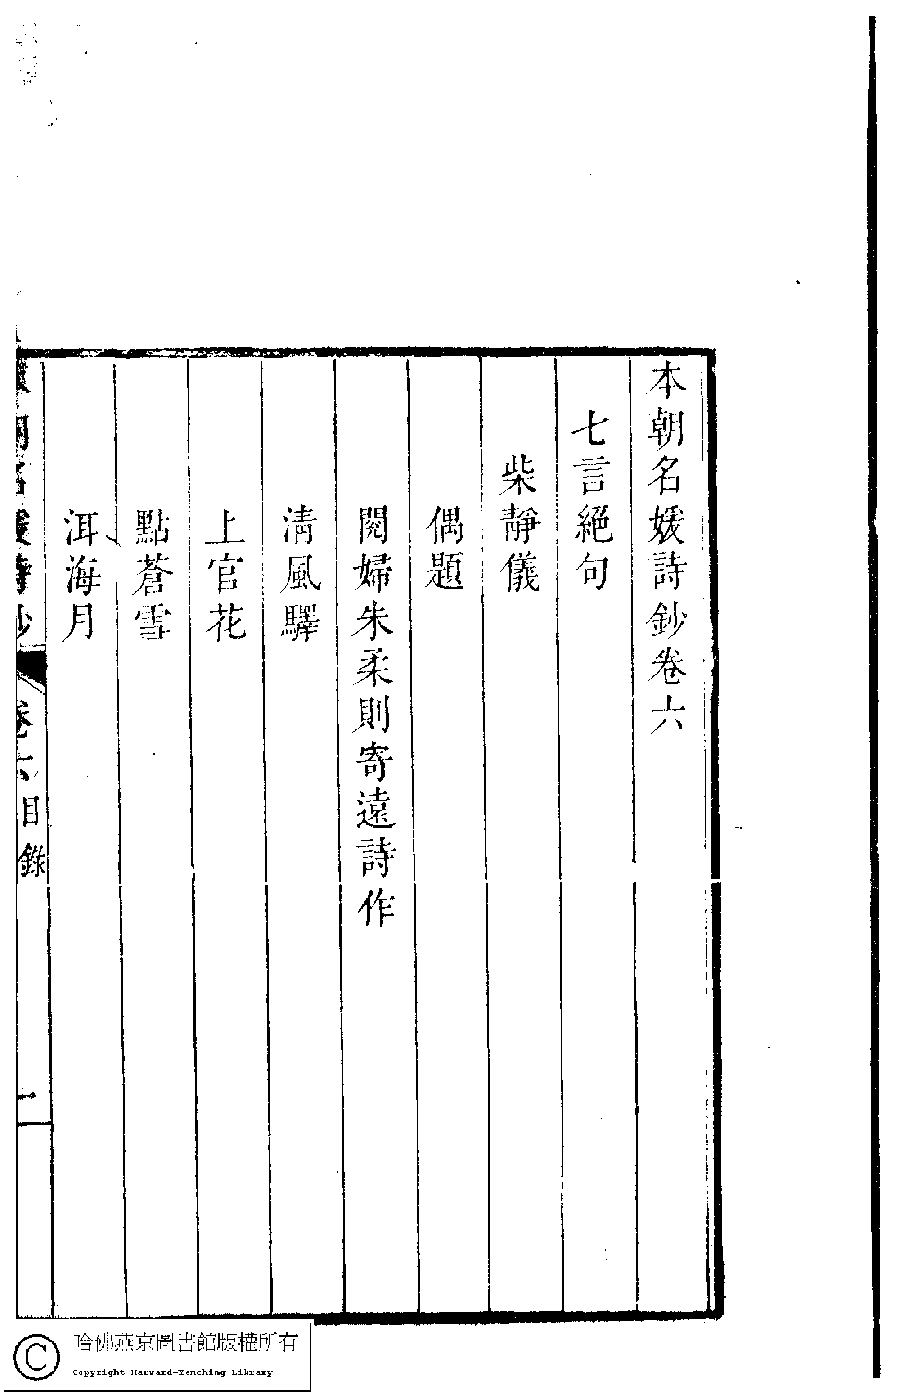 本朝名媛詩鈔卷六
七言絕句
柴靜儀
偶題
閱婦朱柔則寄遠詩作
清風驛
上官花
點蒼雪
洱海月
本朝名媛詩鈔 卷六目錄 一
哈佛燕京圖書館版權所有
Copyright Harvard-Yenching Library